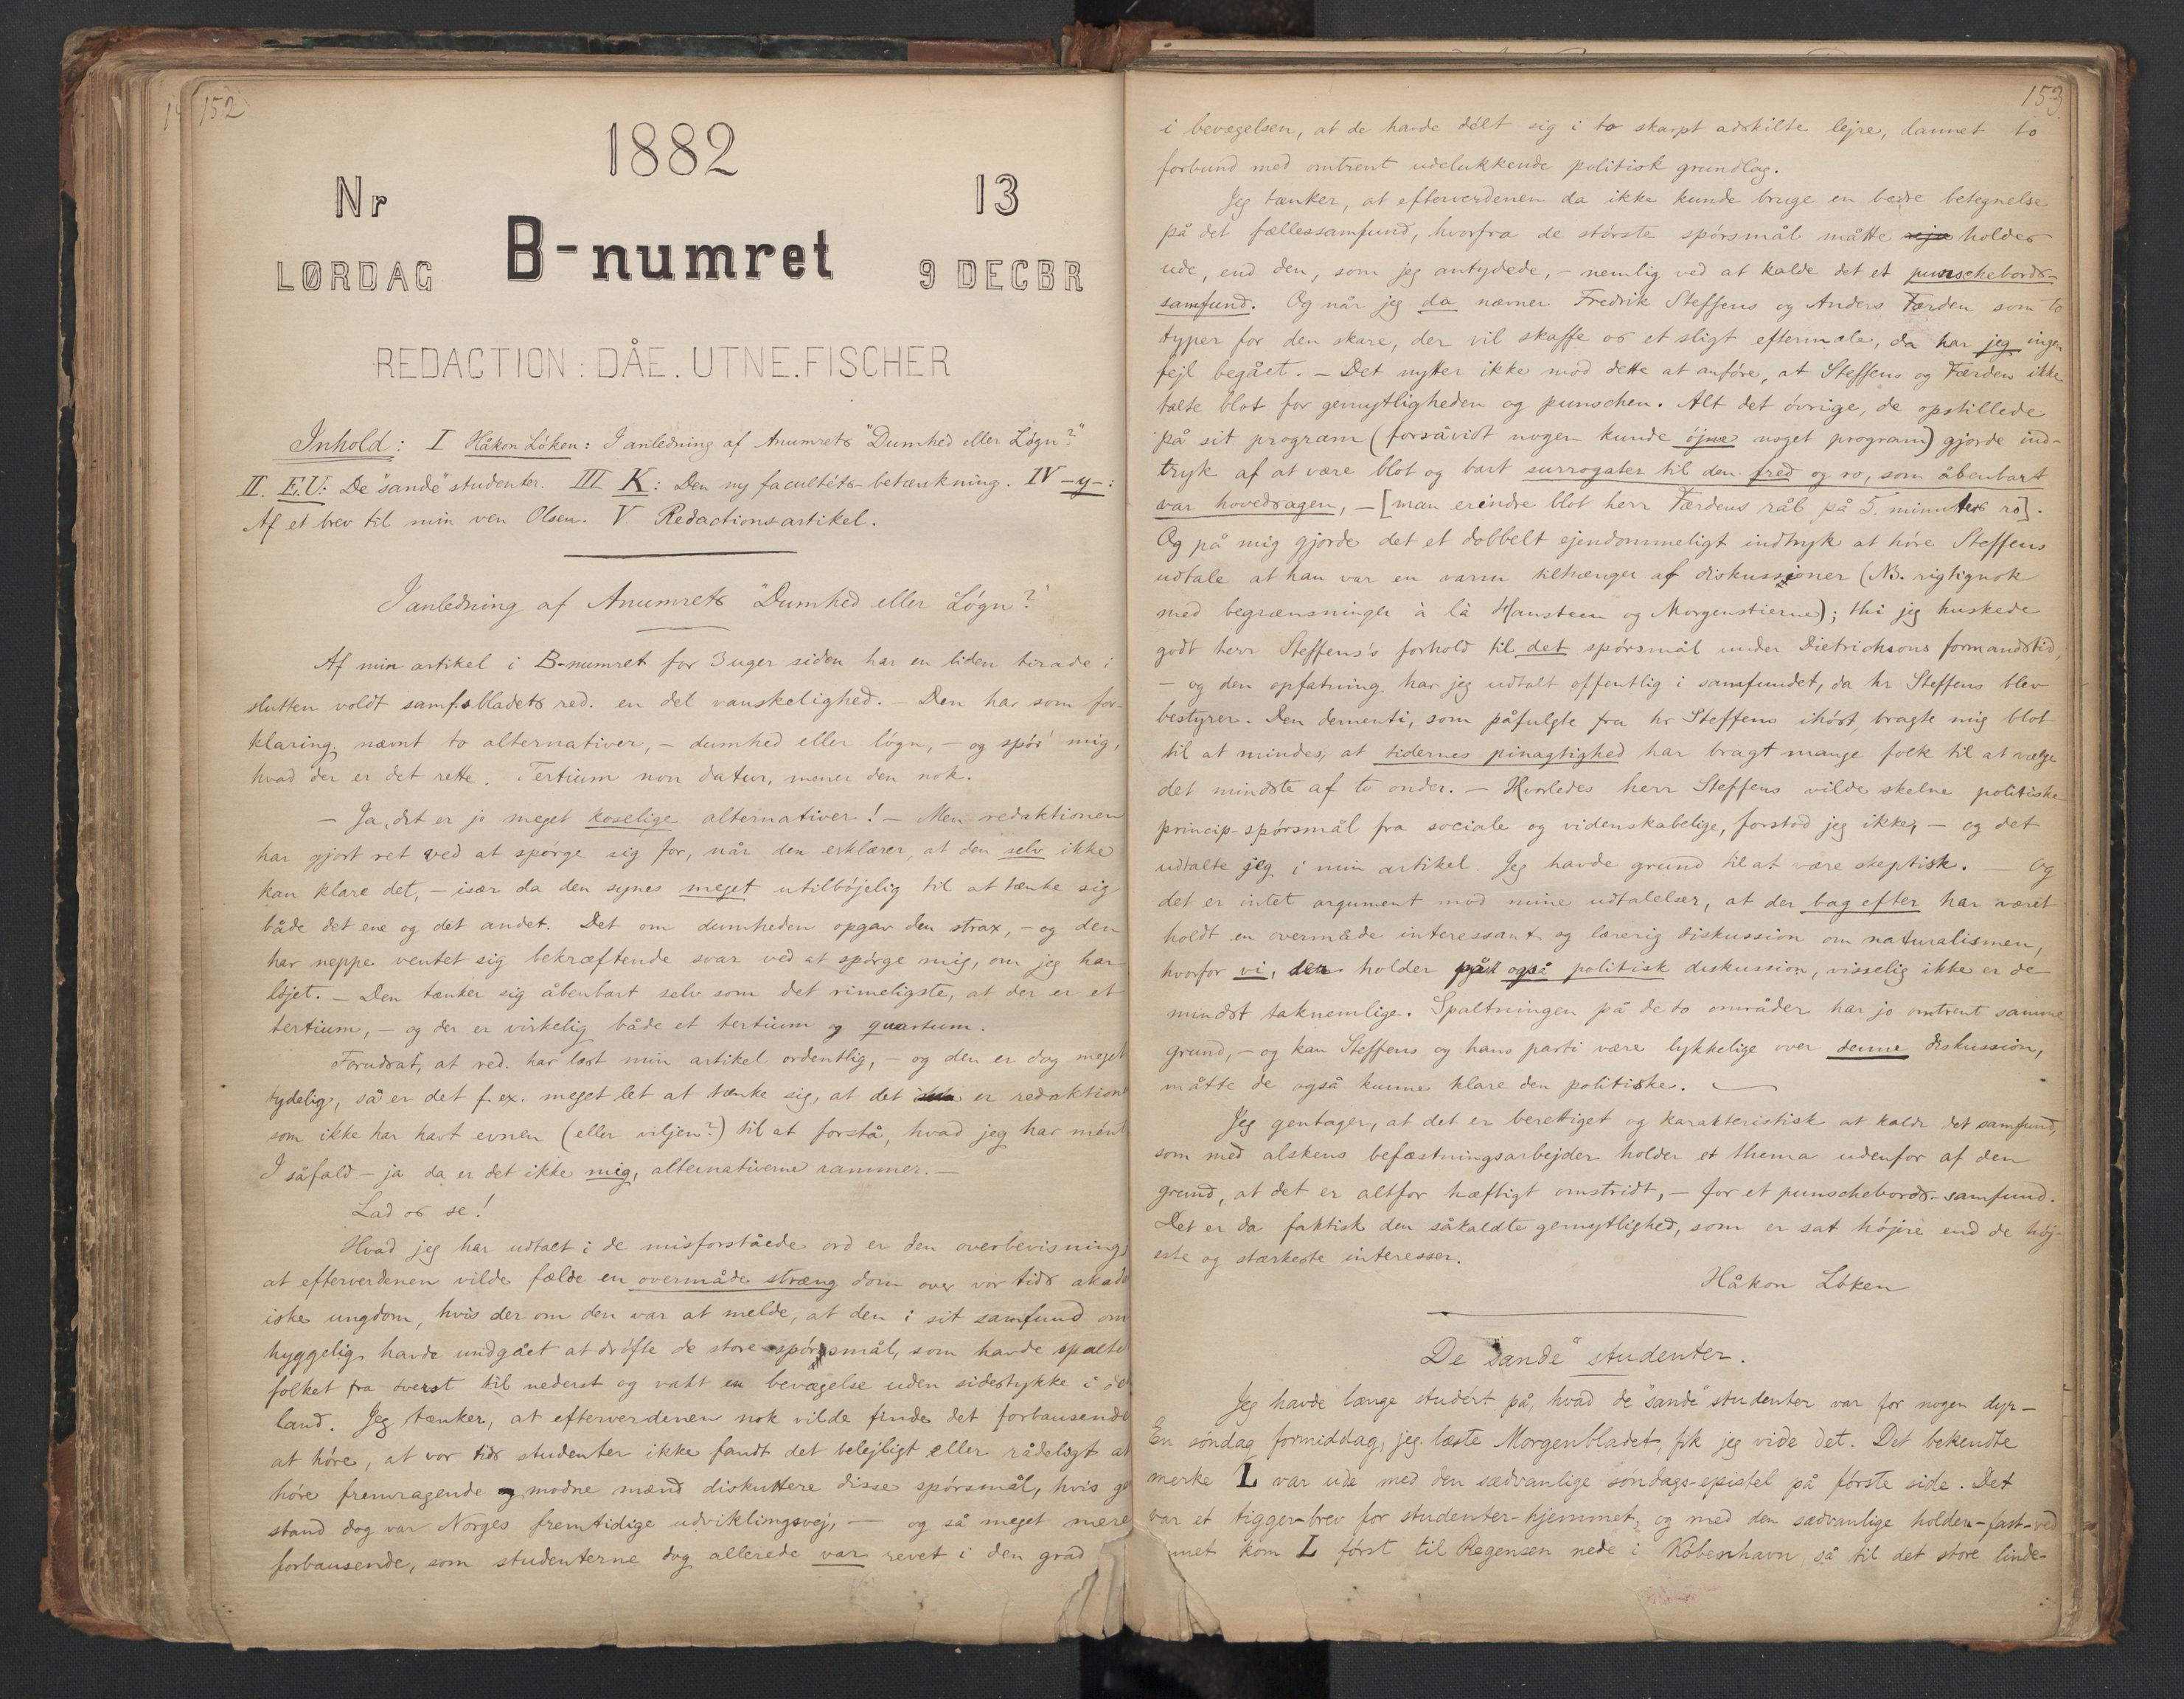 152
1882
Nr
13
B-numret
LØRDAG
9 DECBR
REDACTION: DÅE. UTNE. FISCHER
Inhold: I Håkon Löken: I anledning af Anumrets "Dumhed eller Løgn?"
II. E.U: De "sande" studenter. III K: Den ny facultéts-betænkning. IV -y-:
Af et brev til min ven Olsen. V Redactionsartikel.
I anledning af Anumrets "Dumhed eller Løgn?"
Af min artikel i B-numret for 3 uger siden har en liden tirade i
slutten voldt samf.sbladets red. en del vanskelighed. - Den har som for-
klaring nævnt to alternativer, - dumhed eller løgn, - og spör mig,
hvad der er det rette. Tertium non datur, mener den nok.
- Ja, det er jo meget koselige alternativer! - Men redaktionen
har gjort ret ved at spørge sig for, når den erklærer, at den selv ikke
kan klare det, - især da den synes meget utilbøjelig til at tænke sig
både det ene og det andet. Det om dumheden opgav den strax, - og den
har neppe ventet sig bekræftende svar ved at spørge mig, om jeg har
løjet. - Den tænker sig åbenbart selv som det rimeligste, at der er et
tertium, - og der er virkelig både et tertium og quartum.
Forudsat, at red. har læst min artikel ordentlig, - og den er dog meget
tydelig, så er det f. ex. meget let at tænke sig, at det er redaktion
som ikke har havt evnen (eller viljen?) til at forstå, hvad jeg har mént
I såfald - ja da er det ikke mig, alternativerne rammer. -
Lad os se!
Hvad jeg har udtalt i de misforståede ord er den overbevisning,
at efterverdenen vilde fælde en overmåde stræng dom over vor tids akade
iske ungdom, hvis der om den var at melde, at den i sit samfund om
hyggelig havde undgået at dröfte de store spörgsmål, som havde spaltet
folket fra överst til nederst og vakt en bevægelse uden sidestykke i
land. Jeg tænker, at efterverdenen nok vilde finde det forbausende
at höre, at vor tids studenter ikke fandt det belejligt eller rådeligt at
höre fremragende og modne mænd diskuttere disse spörsmål, hvis g
stand dog var Norges fremtidige udviklingsvej, - og så meget mere
forbausende, som studenterne dog allerede var revet i den grad
153
i bevægelsen, at de havde délt sig i to skarpt adskilte lejre, dannet to
forbund med omtrent udelukkende politisk grundlag.
Jeg tænker, at efterverdenen da ikke kunde bruge en bedre betegnelse
på det fællessamfund, hvorfra de störste spörsmål måtte holdes
ude, end den, som jeg antydede, - nemlig ved at kalde det et punschebords-
samfund. Og når jeg da nævner Fredrik Steffens og Anders Færden som to
typer for den skare, der vil skaffe os et sligt eftermæle, da har jeg ingen
fejl begået. - Det nytter ikke mod dette at anföre, at Steffens og Færden ikke
talte blot for gemytligheden og punschen. Alt det övrige, de opstillede
på sit program (forsåvidt nogen kunde öjne noget program) gjorde ind-
tryk af at være blot og bart surrogater til den fred og ro, som åbenbart
var hovedsagen, - [man erindre blot herr Færdens råb på 5 minutters ro].
Og på mig gjorde det et dobbelt ejendommeligt indtryk at höre Steffens
udtale at han var en varm tilhænger af diskussioner (NB. rigtignok
med begrænsninger à là Hansteen og Morgenstierne); thi jeg huskede
godt herr Steffens's forhold til det spörsmål under Dietrichsons formandstid,
- og den opfatning har jeg udtalt offentlig i samfundet, da hr Steffens blev
bestyrer. Den dementi, som påfulgte fra hr Steffens ihöst, bragte mig blot
til at mindes, at tidernes pinagtighed har bragt mange folk til at vælge
det mindste af to onder. - Hvorledes herr Steffens vilde skelne politiske
princip-spörsmål fra sociale og videnskabelige, forstod jeg ikke, - og det
udtalte jeg i min artikel. Jeg havde grund til at være skeptisk. - Og
det er intet argument mod mine udtalelser, at der bag efter har været
holdt en overmåde interessant og lærerig diskussion om naturalismen,
hvorfor vi, der holder på også politisk diskussion, visselig ikke er de
mindst taknemlige. Spaltningen på de to områder har jo omtrent samme
grund, - og kan Steffens og hans parti være lykkelige over denne diskussion,
måtte de også kunne klare den politiske.
Jeg gentager, at det er berettiget og karakteristisk at kalde det samfund,
som med alskens befæstningsarbejder holder et thema udenfor af den
grund, at det er altfor hæftigt omstridt, - for et punschebords-samfund.
Det er da faktisk den såkaldte gemytlighed, som er sat höjre end de höj-
este og stærkeste interesser.
Håkon Löken
De "sande" studenter.
Jeg havde længe studért på, hvad de "sande" studenter var for nogen dyr -
En söndag formiddag, jeg læste Morgenbladet, fik jeg vide det. Det bekendte
merke L var ude med den sædvanlige söndags-epistel på förste side. Det
var et tigger-brev for studenter-hjemmet, og med den sædvanlige holden-fast-ved
kom L först til Regensen nede i København så til det store linde-